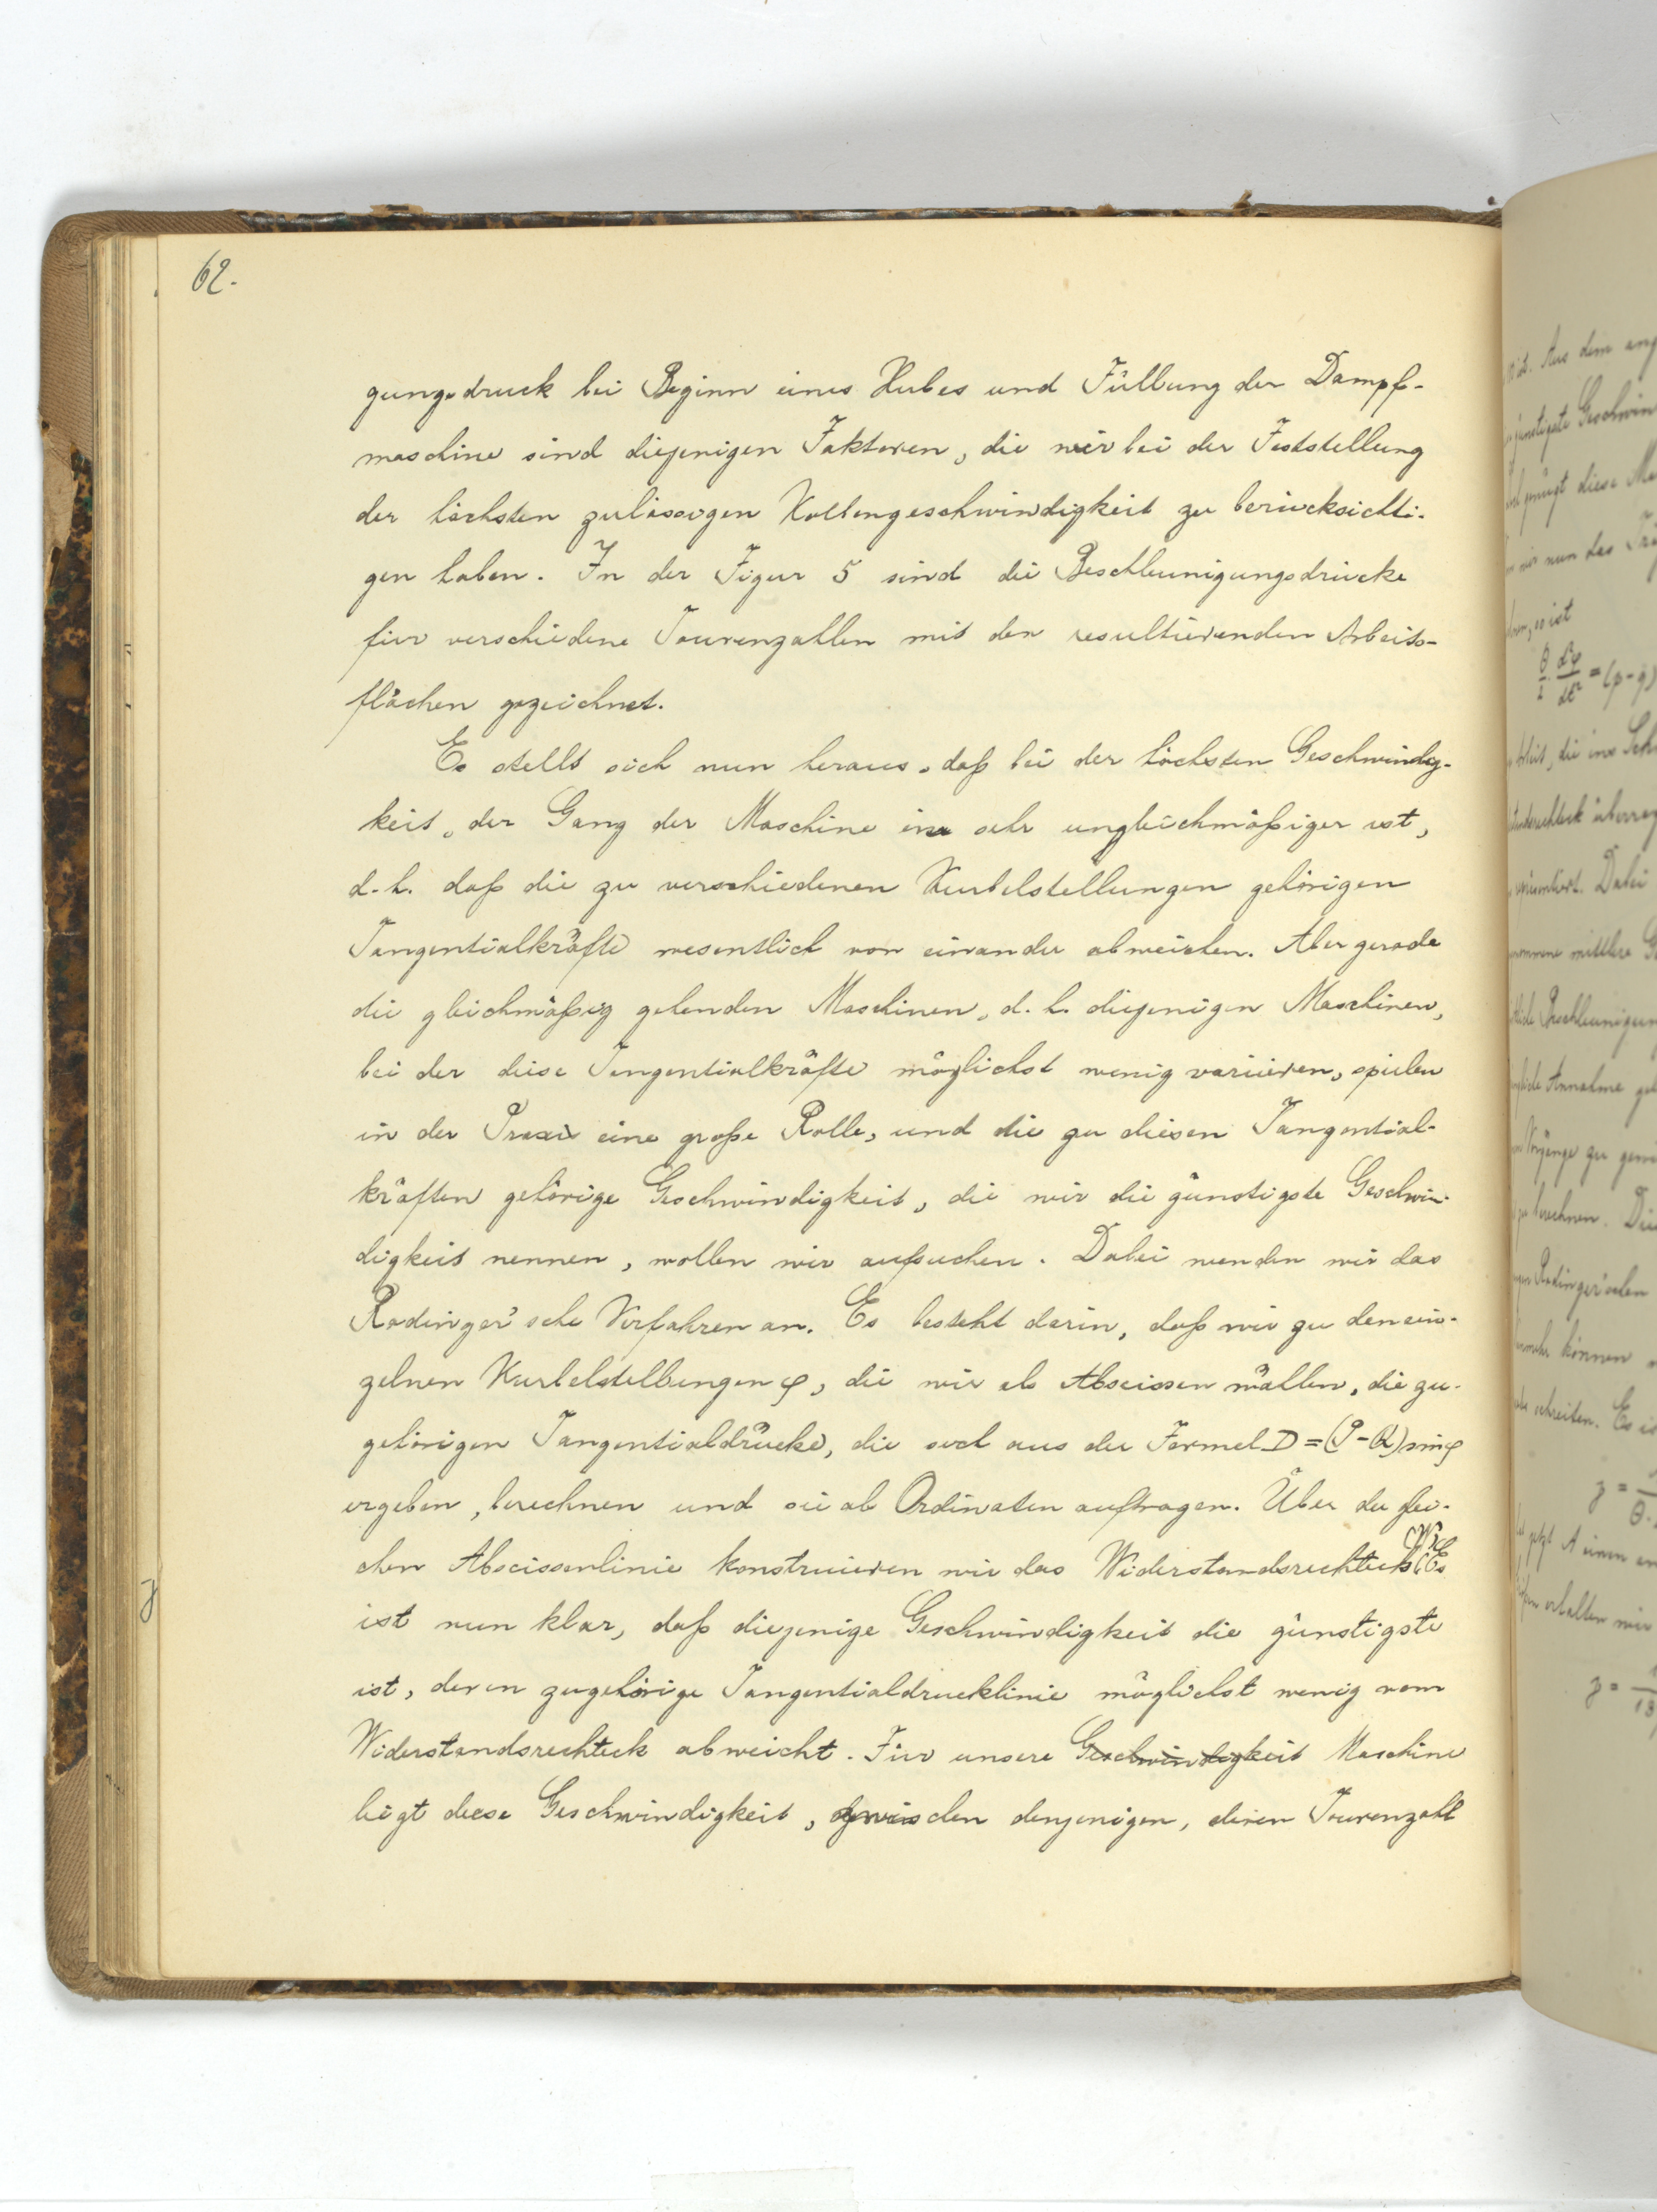 62.
gungsdruck bei Beginn eines Hubes und Füllung der Dampf-
maschine sind diejenigen Faktoren, die wir bei der Feststellung
der höchsten zulässigen Kolbengeschwindigkeit zu berücksichti-
gen haben. In der Figur 5 sind die Beschleunigungsdrücke
für verschiedene Tourenzahlen mit den resultierenden Arbeits-
flächen gezeichnet.
Es stellt sich nun heraus, daß bei der höchsten Geschwindig-
keit, der Gang der Maschine ein sehr ungleichmäßiger ist,
d.h. daß die zu verschiedenen Kurbelstellungen gehörigen
Tangentialkräfte wesentlich von einander abweichen. Aber gerade
die gleichmäßig gehenden Maschinen, d.h. diejenigen Maschinen,
bei der diese Tangentialkräfte möglichst wenig variieren, spielen
in der Praxis eine große Rolle, und die zu diesen Tangential-
kräften gehörige Geschwindigkeit, die wir die günstigste Geschwin-
digkeit nennen, wollen wir aufsuchen. Dabei wenden wir das
Radinger'sche Verfahren an. Es besteht darin, daß wir zu den ein-
zelnen Kurbelstellungen φ, die wir als Abscissen wählen, die zu-
gehörigen Tangentialdrücke, die sich aus der Formel D = (P-Q) sin φ
ergeben, berechnen und sie als Ordinaten auftragen. Über der glei-
chen Abscissenlinie konstruieren wir das Widerstandsrechteck (W). Es
ist nun klar, daß diejenige Geschwindigkeit die günstigste
ist, deren zugehörige Tangentialdrucklinie möglichst wenig vom
Widerstandsrechteck abweicht. Für unsere Geschwindigkeit Maschine
liegt diese Geschwindigkeit, zwischen denjenigen, deren Tourenzahl